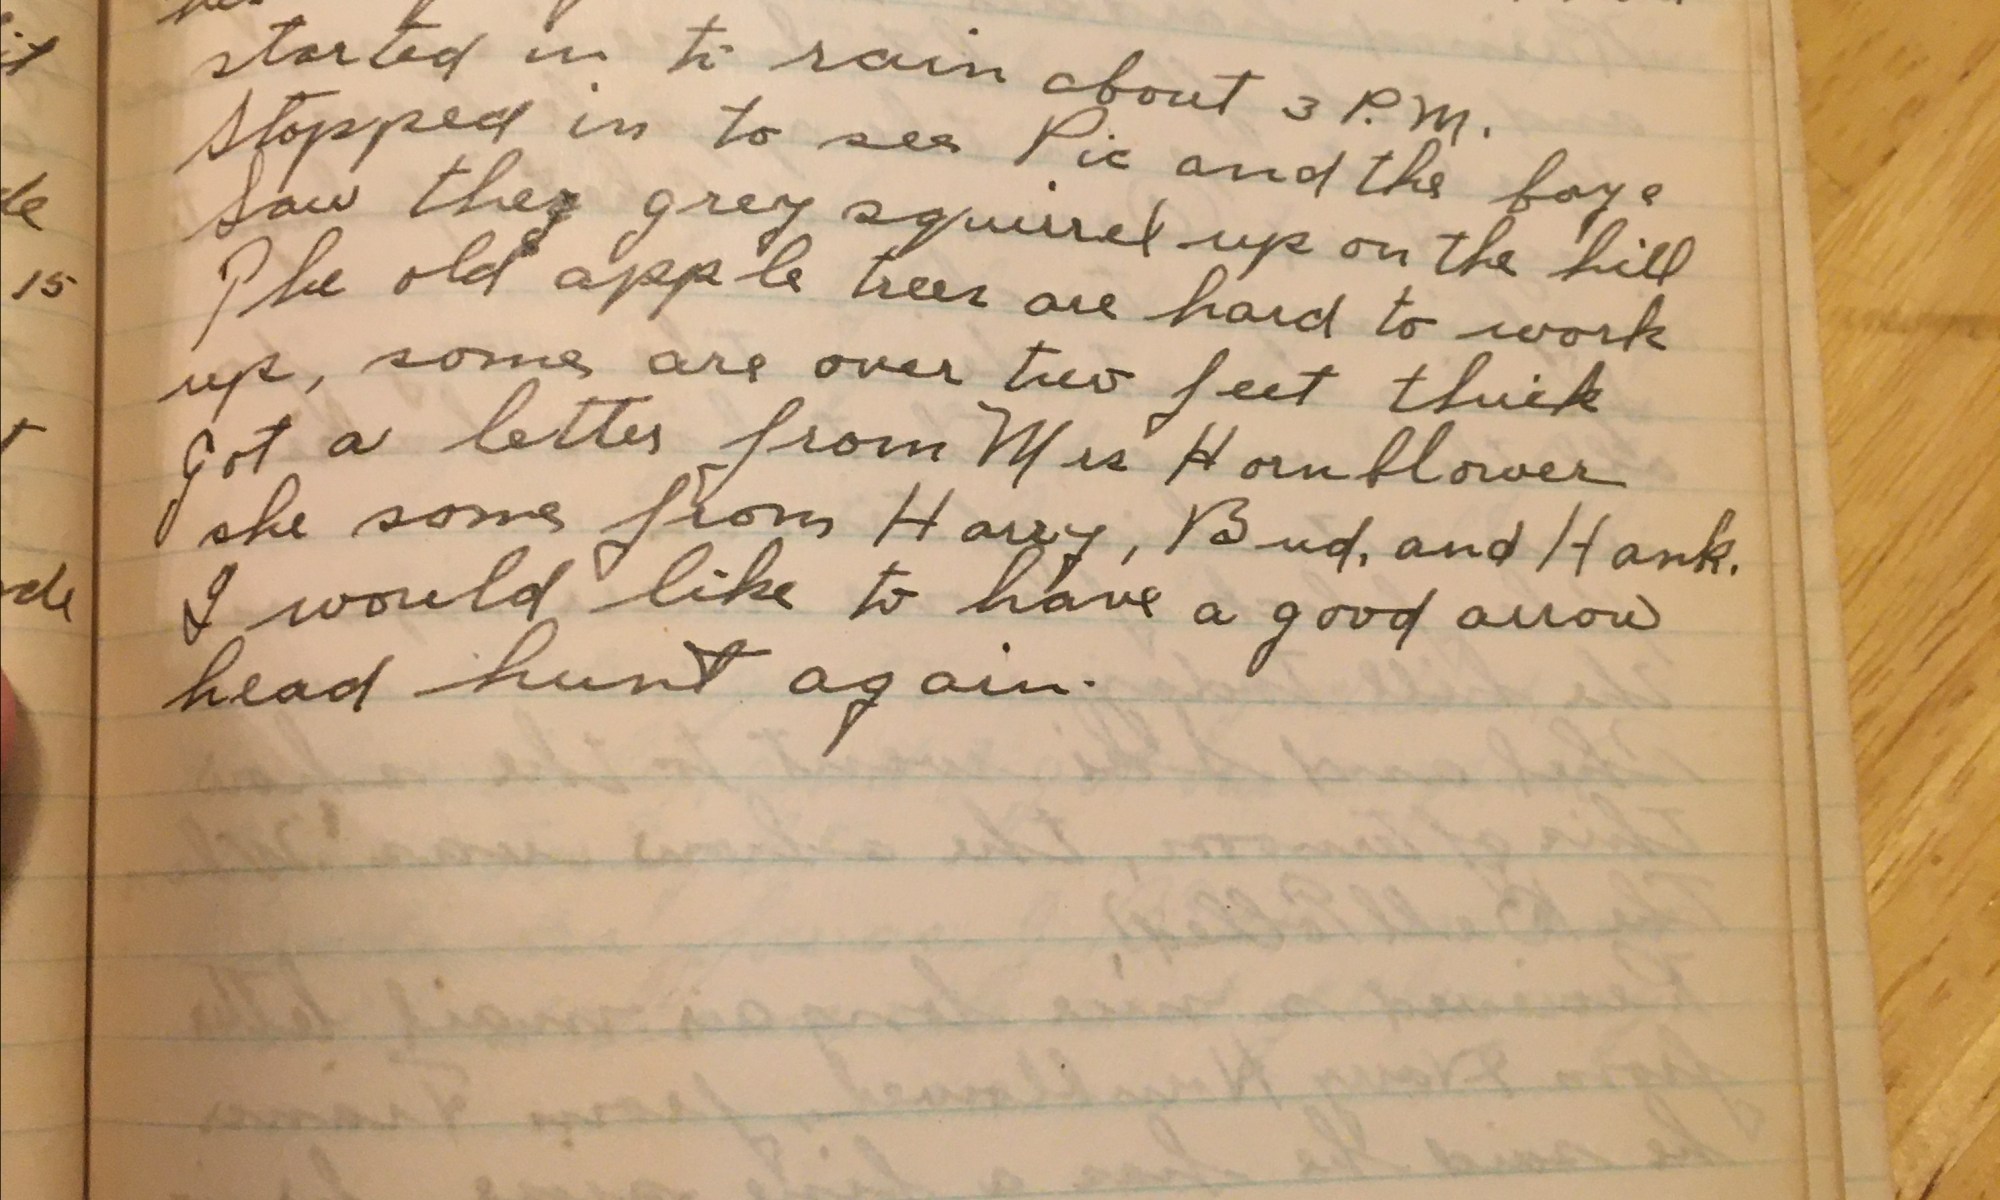 started in to rain about 3 P.M.
Stopped in to see Pic and the boys
Saw they grey squirrel up on the hill
The old apple trees are hard to work
up, some are over two feet thick
Got a letter from Mrs Hornblower
she some from Harry, Bud, and Hank.
I would like to have a good arrow
head hunt again.
15